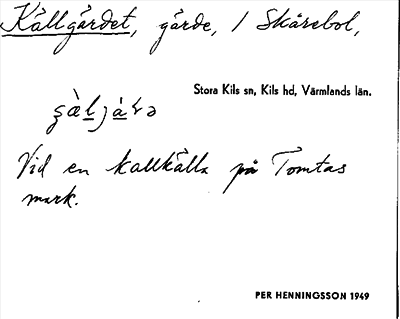 Källgärdet, gärde, i Skårebol,
Stora Kils sn, Kils hd, Värmlands län.
Vid en kallkälla på Tomtas
mark.
PER HENNINGSSON 1949